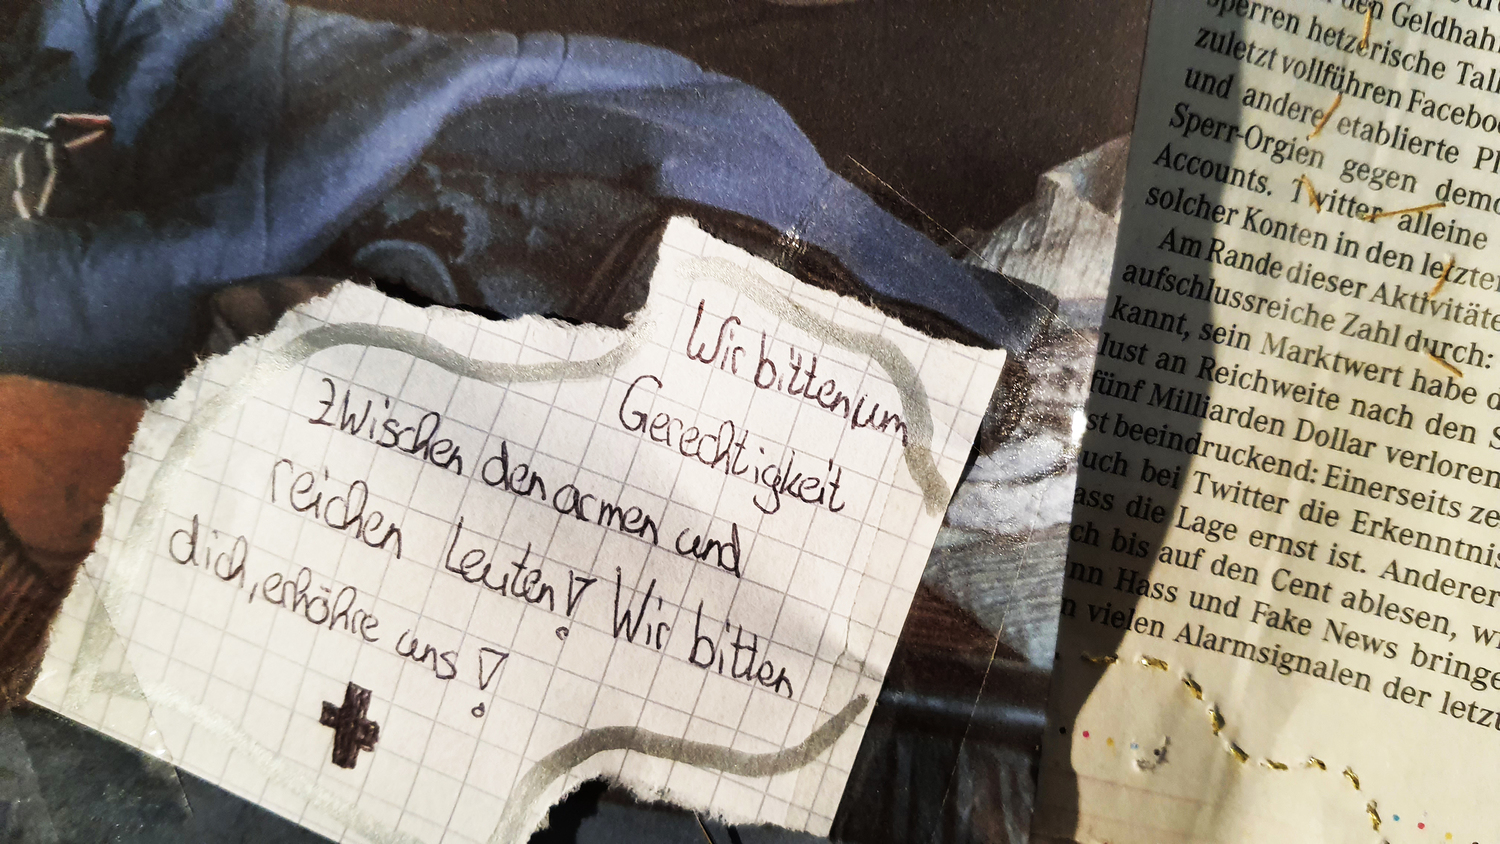 Wir bitten um
Gerechtigkeit
zwischen den armen und
reichen Leuten! Wir bitten
dich, erhöhre uns!
den Geldhah
sperren hetzerische Talk
zuletzt vollführen Facebo
und andere etablierte Pl
Sperr-Orgien gegen demo
Accounts. Twitter alleine
solcher Konten in den letzten
Am Rande dieser Aktivitäte
aufschlussreiche Zahl durch:
kannt, sein Marktwert habe d
lust an Reichweite nach den S
fünf Milliarden Dollar verloren
st beeindruckend: Einerseits ze
uch bei Twitter die Erkenntnis
ass die Lage ernst ist. Anderer
ch bis auf den Cent ablesen, wi
nn Hass und Fake News bringe
n vielen Alarmsignalen der letzt